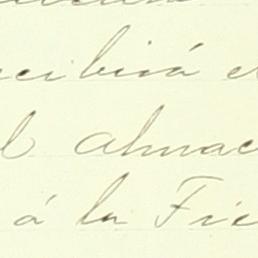 ecibirá e
l almac
á la Fie